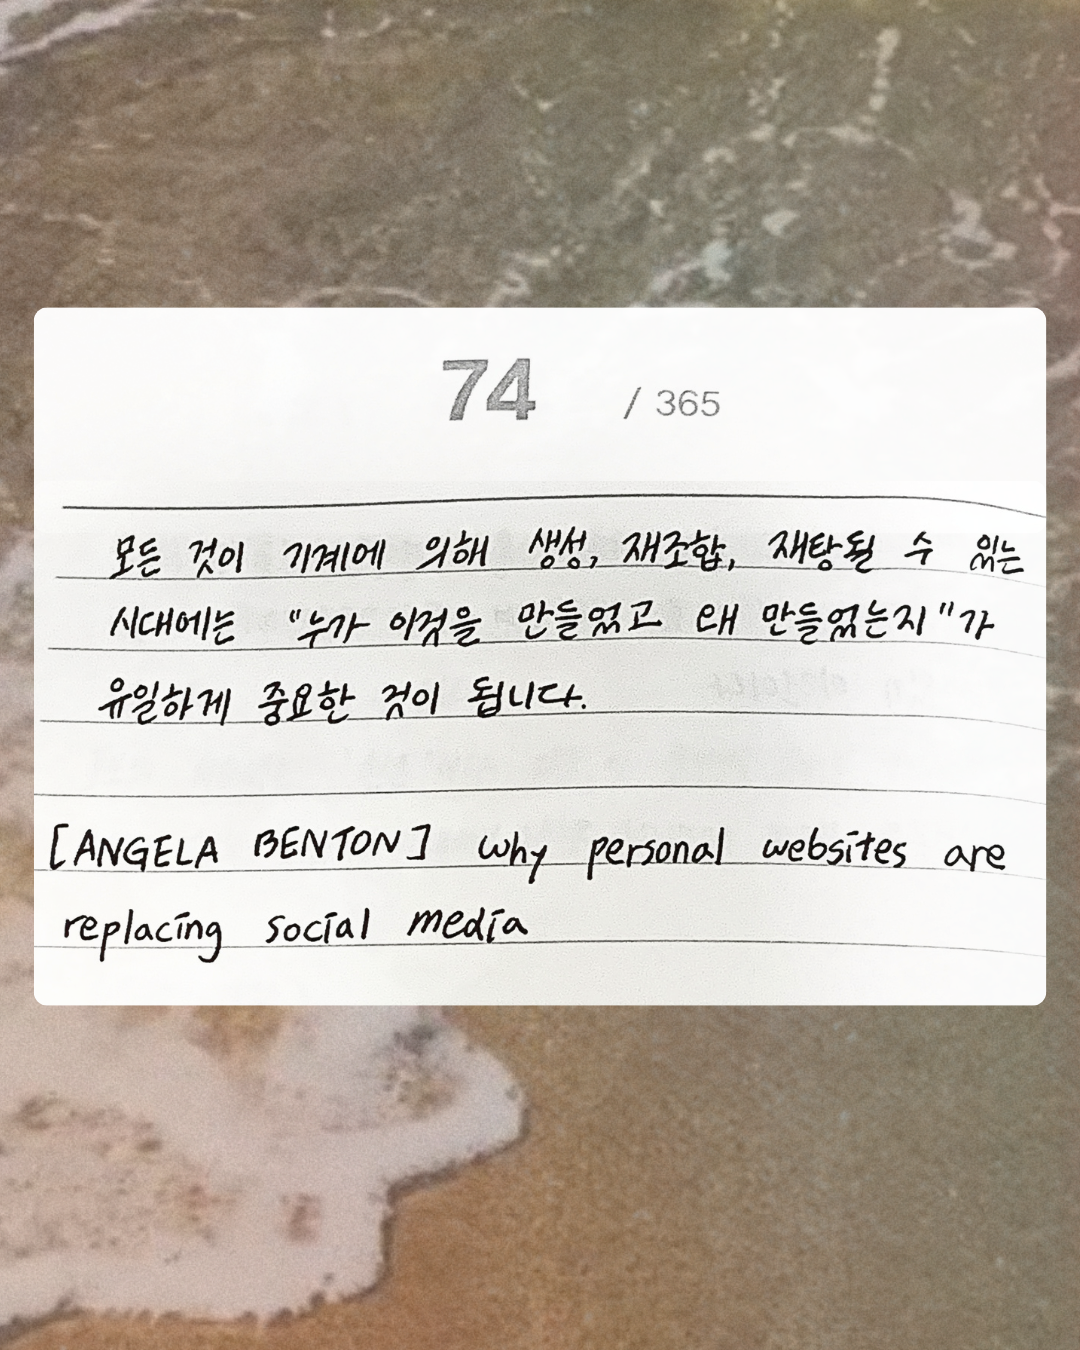 74 / 365
모든 것이 기계에 의해 생성, 재조합, 재탕될 수 있는
시대에는 "누가 이것을 만들었고 왜 만들었는지"가
유일하게 중요한 것이 됩니다.
[ANGELA BENTON] why personal websites are
replacing social media